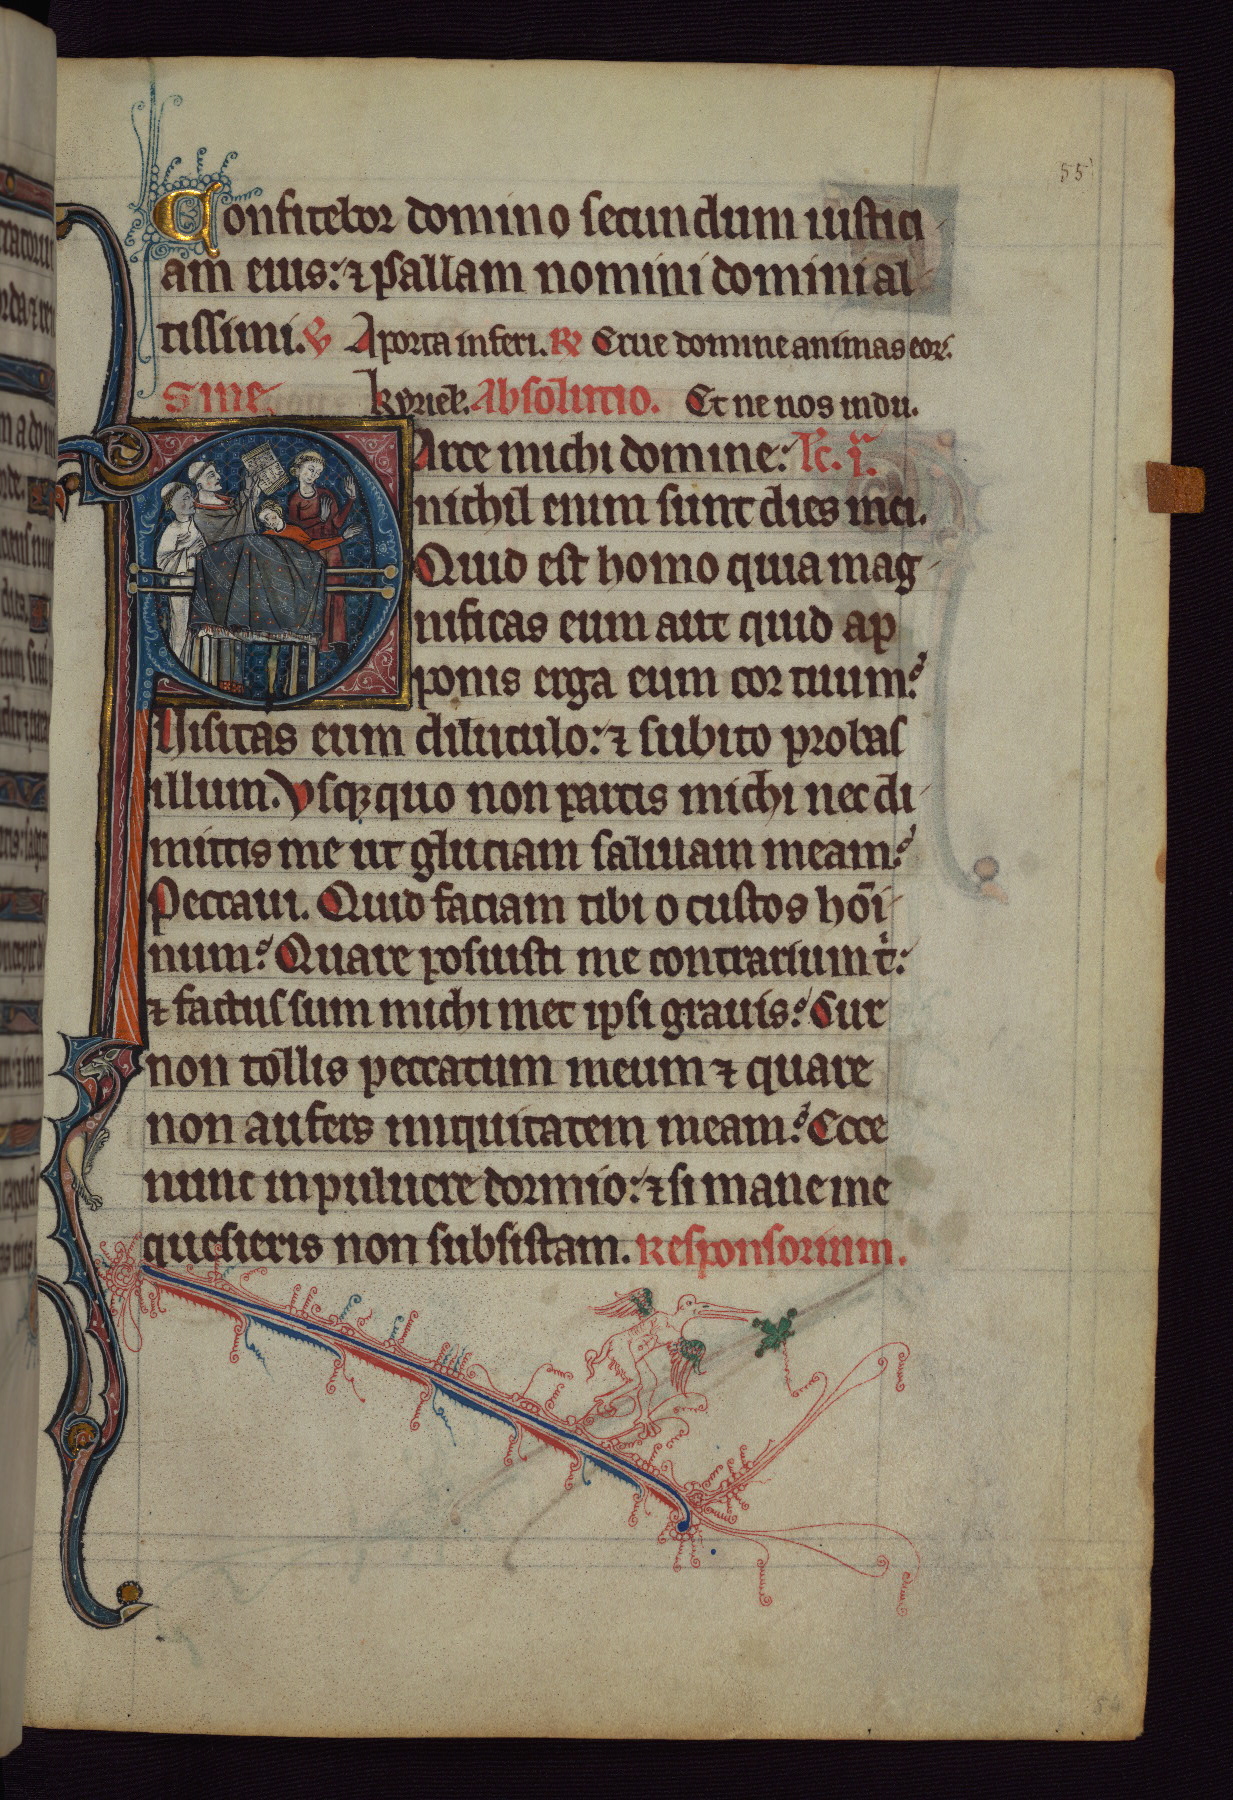 55
Confitebor domino secundum iustici
am eius: ⁊ psallam nomini domini al
tissimi. ℣ A porta inferi. ℟ Erue domine animas eor.
Sine. kyriel. Absolutio. Et ne nos indu.
Parce michi domine: Lc. i.
nichil enim sunt dies mei.
Quid est homo quia mag
nificas eum aut quid ap
ponis erga eum cor tuum?
Uisitas eum diluculo: ⁊ subito probas
illum. Vsqꝫquo non parcis michi nec di
mittis me ut gluciam saliuam meam?
Peccaui. Quid faciam tibi o custos hoī
num? Quare posuisti me contrarium t͛:
⁊ factus sum michi met ipsi grauis? Cur
non tollis peccatum meum ⁊ quare
non aufers iniquitatem meam? Ecce
nunc in puluere dormio: ⁊ si mane me
quesieris non subsistam. Responsorium.